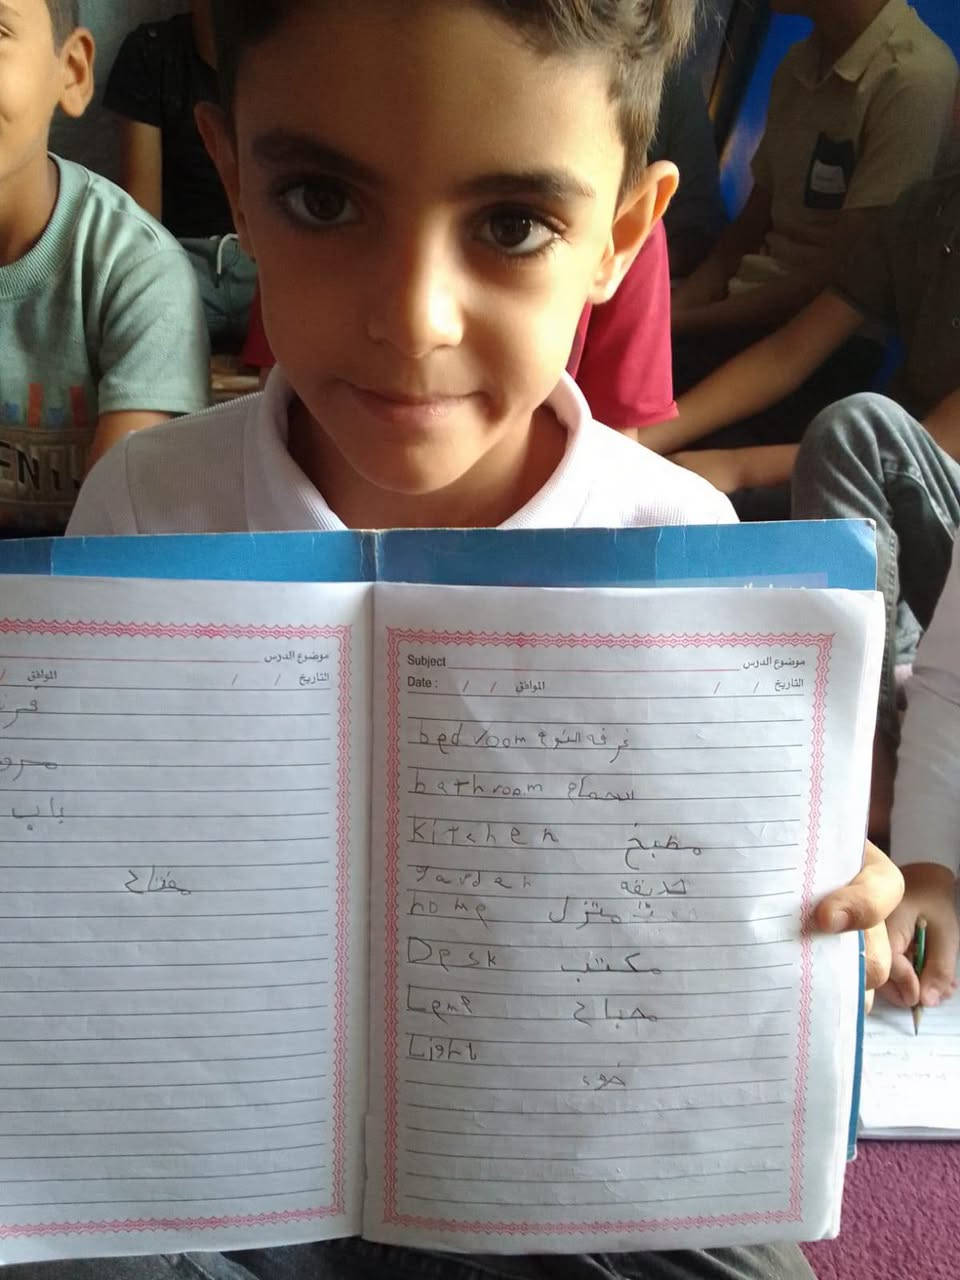 موضوع الدرس
التاريخ / / الموافق /
باب
مفتاح
Subject موضوع الدرس
Date : / / الموافق / / التاريخ
bedroom غرفه النوم
bathroom الحمام
Kitchen مطبخ
garden حديقه
home منزل
Desk مكتب
Lemp مصباح
Light
ضوء